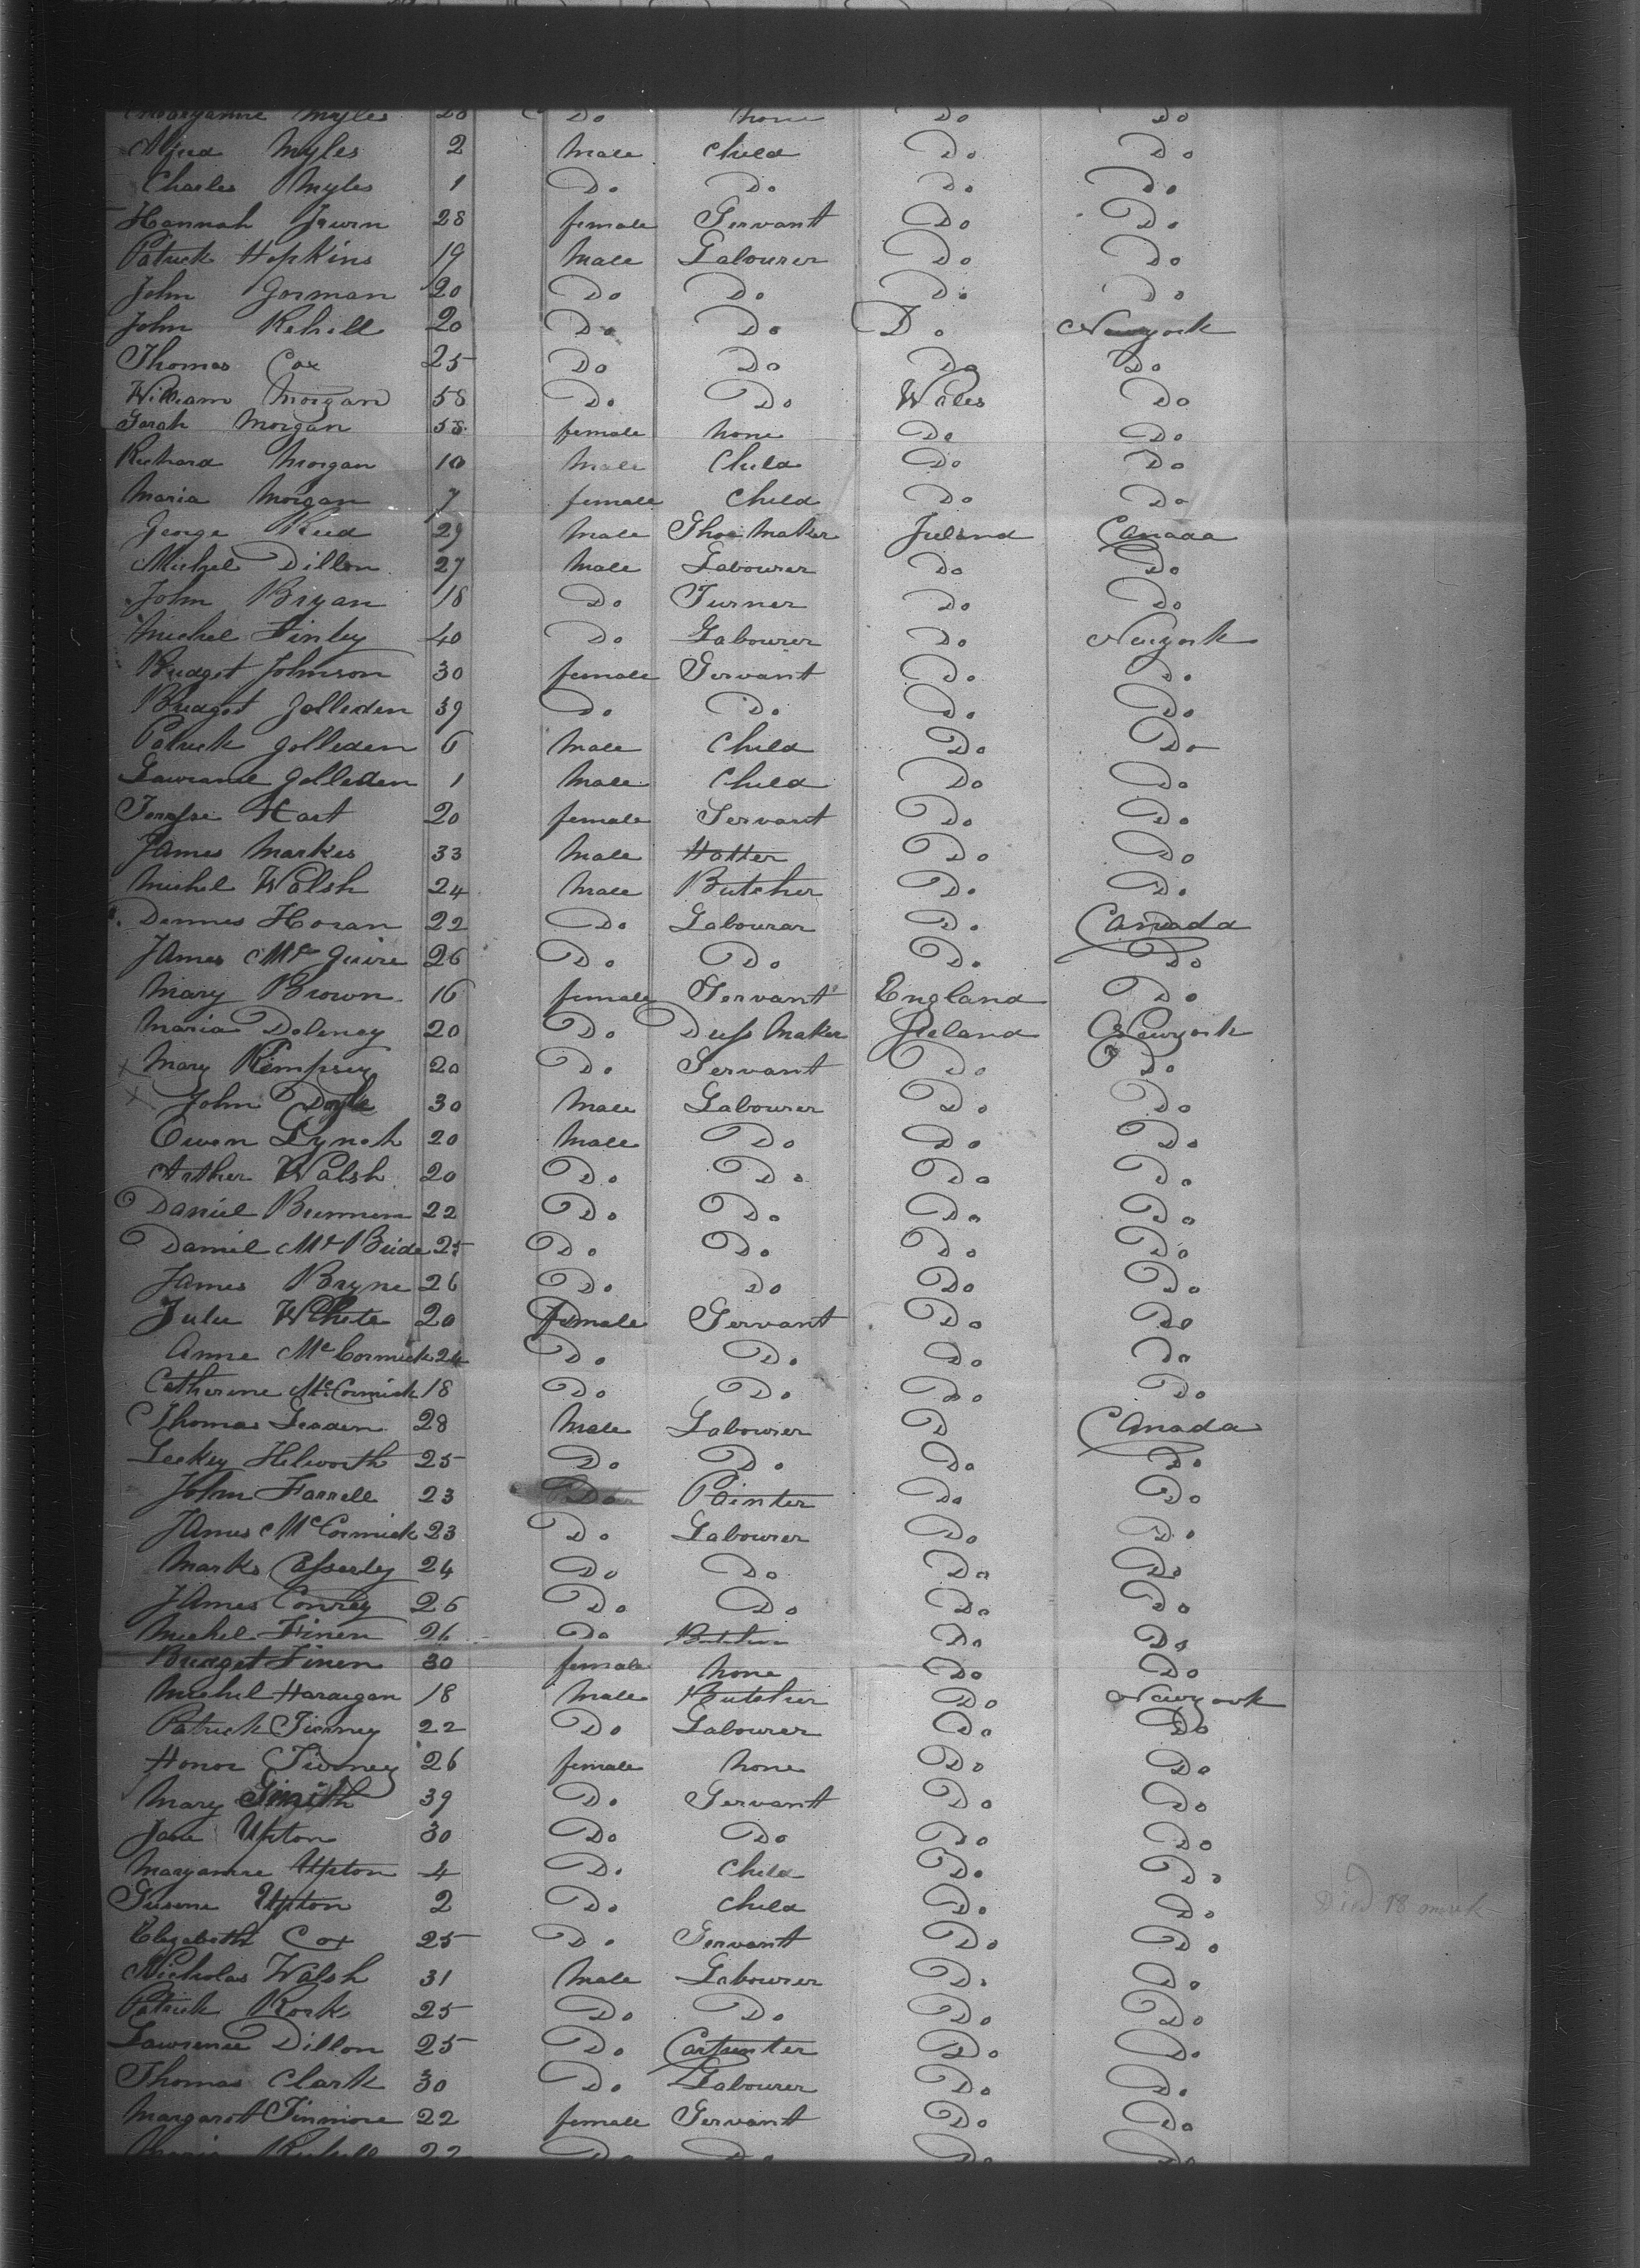 Maryanne Myles 28 Do none Do Do
Alfred Myles 2 Male Child Do Do
Charles Myles 1 Do Do Do Do
Hannah Irwin 28 female Servant Do Do
Patrick Hopkins 19 Male Labourer Do Do
John Gorman 20 Do Do Do Do
John Kehill 20 Do Do Do Newyork
Thomas Cox 25 Do Do Do Do
William Morgan 58 Do Do Wales Do
Sarah Morgan 58 female none Do Do
Richard Morgan 10 Male Child Do Do
Maria Morgan 7 female Child Do Do
George Reed 29 Male Shoe Maker Ireland Canada
Michel Dillon 27 Male Labourer Do Do
John Bryan 18 Do Turner Do Do
Michel Finley 40 Do Labourer Do Newyork
Bridget Johnson 30 female Servant Do Do
Bridget Golleden 39 Do Do Do Do
Patrick Golleden 6 Male Child Do Do
Lawrance Golleden 1 Male Child Do Do
Hart 20 female Servant Do Do
James Markes 33 Male Hatter Do Do
Michel Walsh 24 Male Butcher Do Do
Dennes Horan 22 Do Labourar Do Canada
James McGuire 26 Do Do Do Do
Mary Brown 16 female Servant England Do
Maria Deleney 20 Do Dress Maker Ireland Newyork
Mary Kempsey 20 Do Servant Do Do
John Doyle 30 Male Labourer Do Do
Owen Lynch 20 Male Do Do Do
Arther Walsh 20 Do Do Do Do
Daniel 22 Do Do Do Do
Daniel McBride 25 Do Do Do Do
James Bryne 26 Do Do Do Do
White 20 female Servant Do Do
Anne McCormick 24 Do Do Do Do
Catherine McCormick 18 Do Do Do Do
Thomas Leaden 28 Male Labourer D Canada
Helworth 25 Do Do Do Do
John Farrell 23 Do Painter Do Do
James McCormick 23 Do Labourer Do Do
Marks Casserley 24 Do Do Do Do
James Conrey 26 Do Do Do Do
Michel Finen 26 Do Butcher Do Do
Bridget Finen 30 female none Do Do
Michel Haraigan 18 Male Butcher Do Newyork
Patrick Tierney 22 Do Labourer Do Do
Honor Tierney 26 female none Do Do
Mary Smith 39 Do Servant Do Do
Jane Upton 30 Do Do Do Do
Maryanne Upton 4 Do Child Do Do
Upton 2 Do Child Do Do Died 18
Elizabeth Cox 25 Do Servant Do Do
Nicholas Walsh 31 Male Labourer Do Do
Patrick Rork 25 Do Do Do Do
Lawrence Dillon 25 Do Carpenter Do Do
Thomas Clark 30 Do Labourer Do Do
Margarett Finmore 22 female Servant Do Do
22 Do Do Do Do